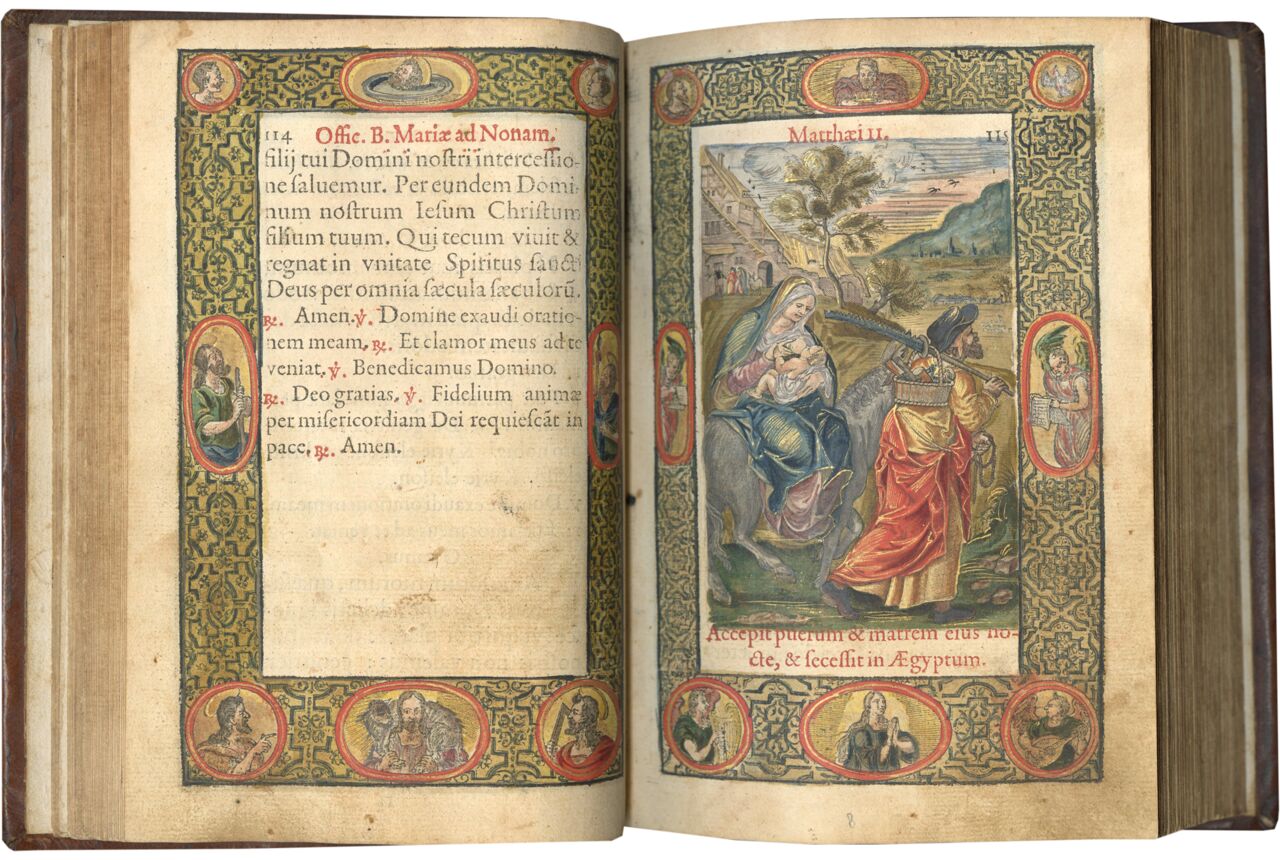 114 Offic. B. Mariæ ad Nonam.
filij tui Domini nostri intercessio-
ne saluemur. Per eundem Domi-
num nostrum Iesum Christum
filium tuum. Qui tecum viuit &
regnat in vnitate Spiritus sancti
Deus per omnia sæcula sæculorũ.
℟. Amen. ℣. Domine exaudi oratio-
nem meam, ℟. Et clamor meus ad te
veniat, ℣. Benedicamus Domino.
℟. Deo gratias, ℣. Fidelium animæ
per misericordiam Dei requiescãt in
pace, ℟. Amen.
Matthæi II. 115
Accepit puerum & matrem eius no-
cte, & secessit in Ægyptum.
8